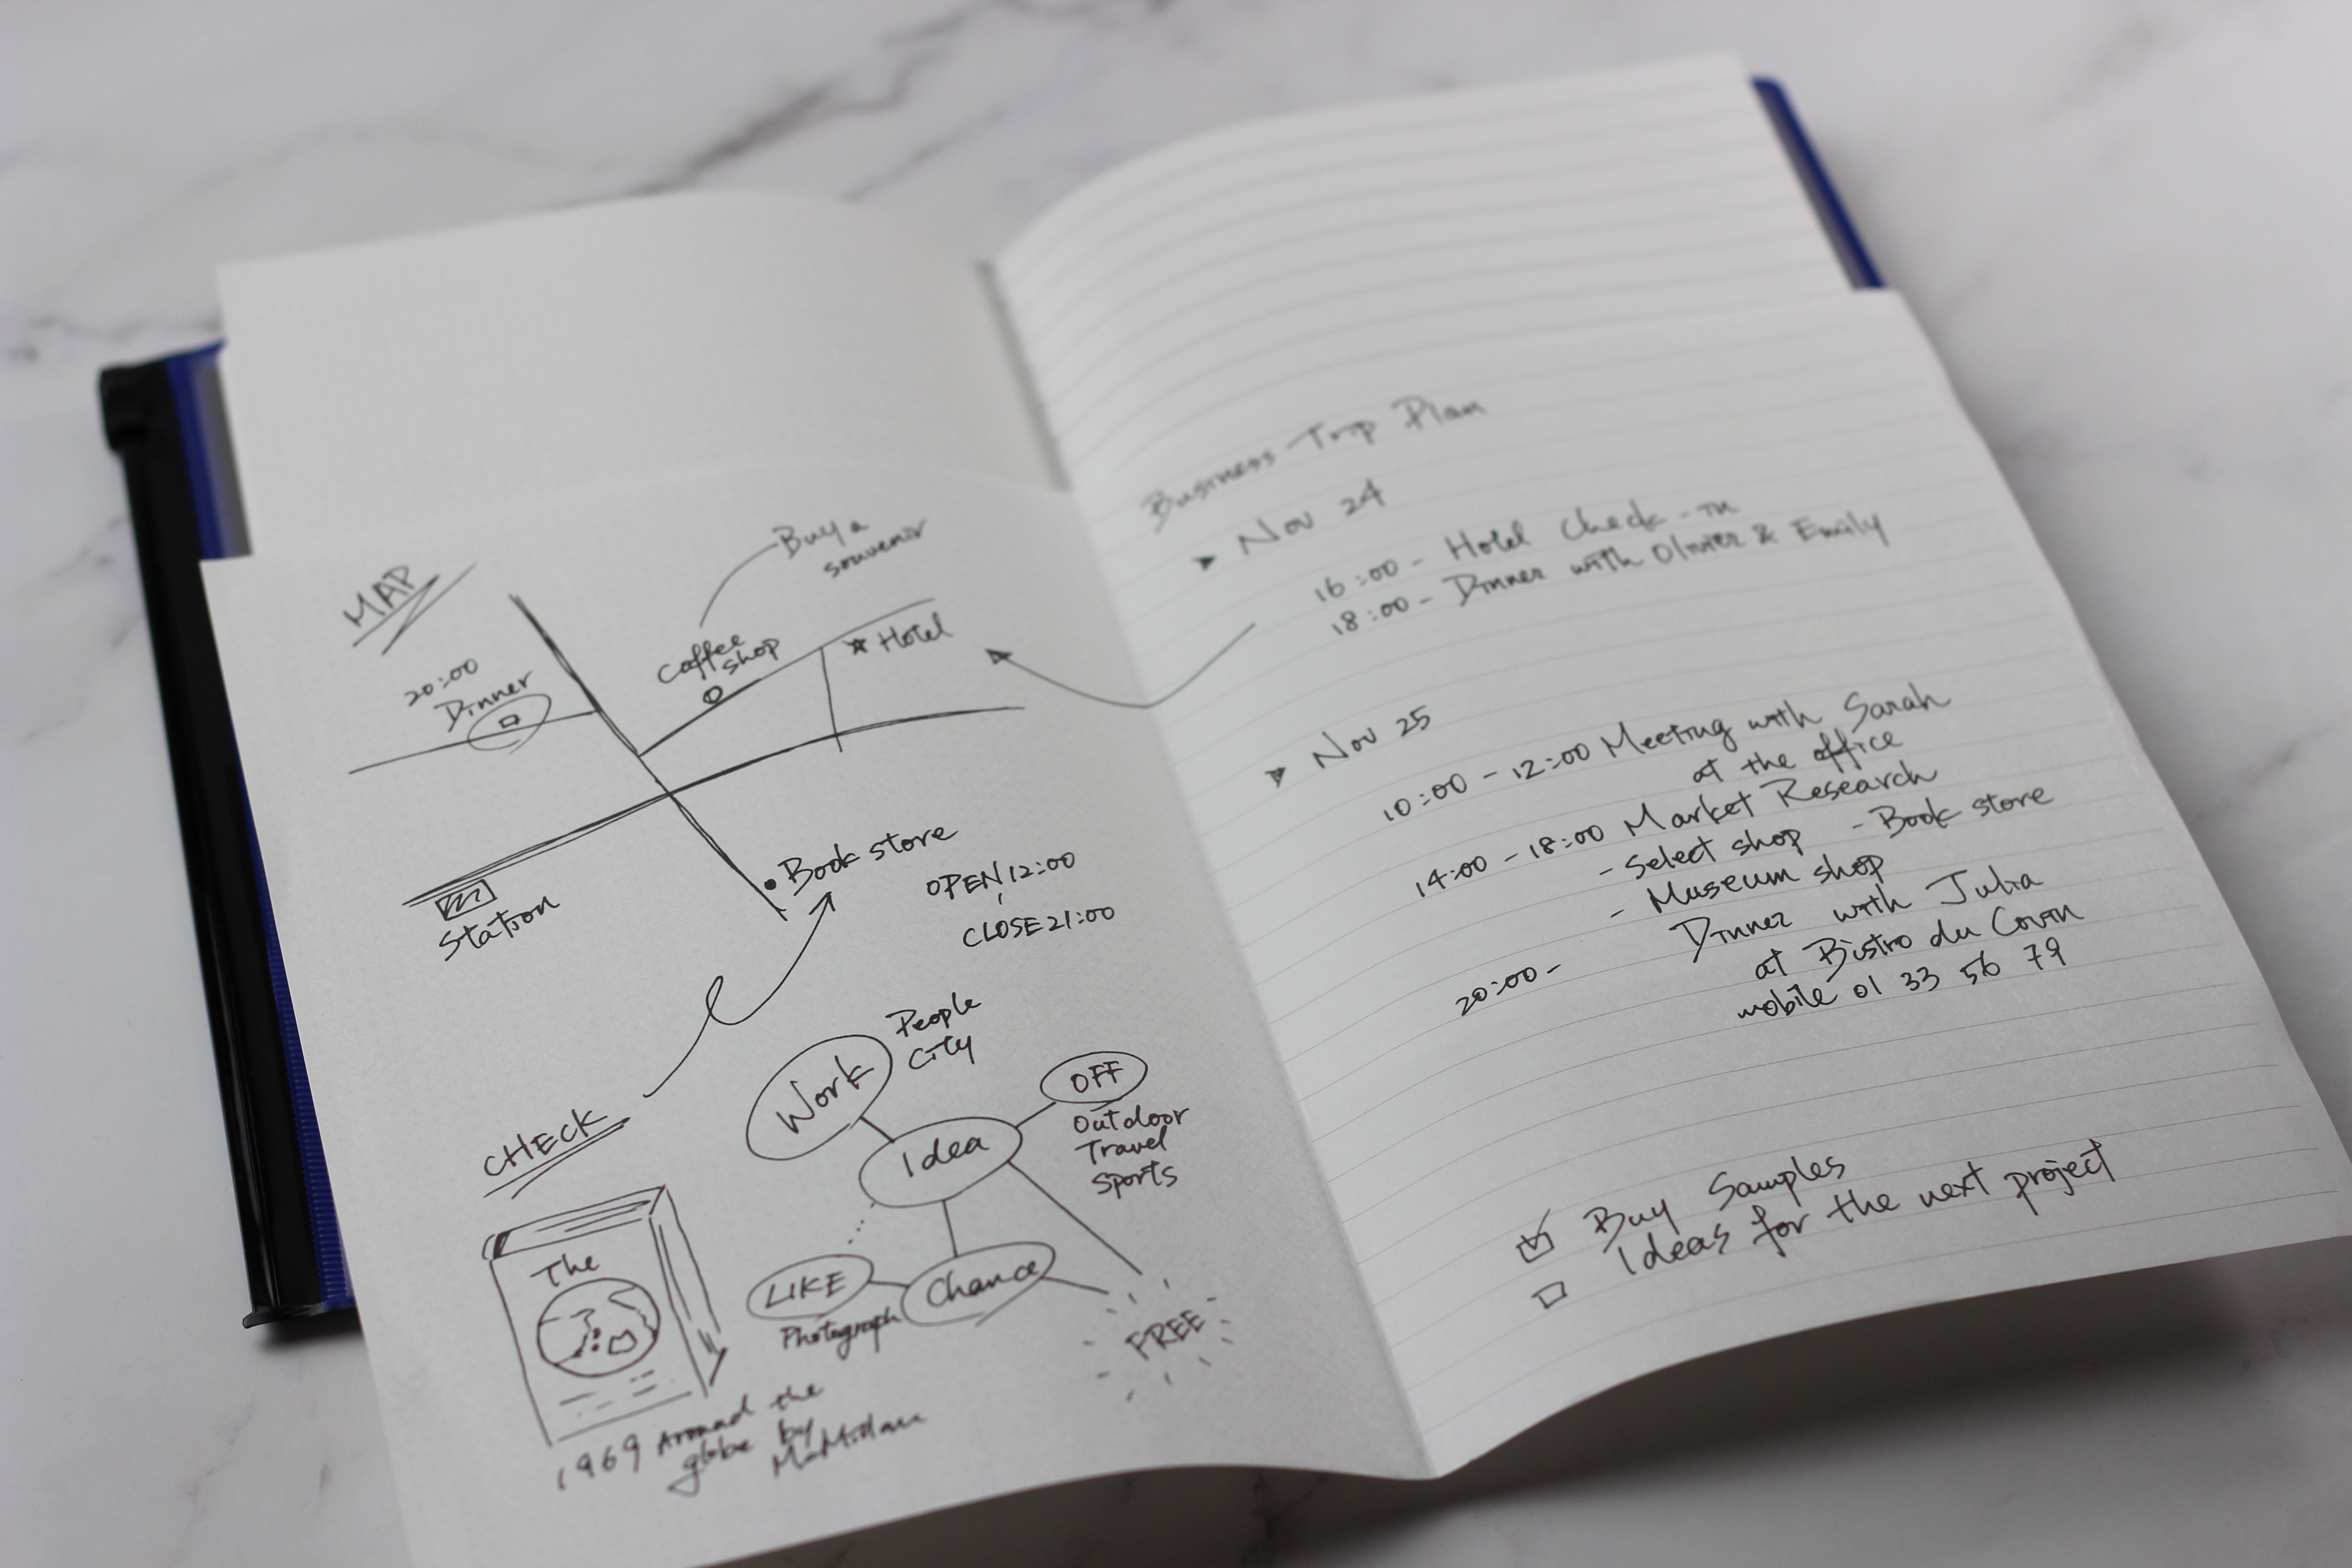 MAP
Buy a
souvenir
20:00
Dinner
Coffee
shop
Hotel
Station
Book store
OPEN 12:00
CLOSE 21:00
CHECK
Work
People
City
Idea
OFF
Outdoor
Travel
Sports
LIKE
Photograph
Chance
FREE
The
1969 Around the
globe by
Business Trip Plan
Nov 24
16:00 - Hotel Check-in
18:00 - Dinner with Olivier & Emily
Nov 25
10:00 - 12:00 Meeting with Sarah
at the office
14:00 - 18:00 Market Research
- Select shop - Book store
- Museum shop
20:00 - Dinner with Julia
at Bistro du Coin
mobile 01 33 56 79
Buy Samples
Ideas for the next project